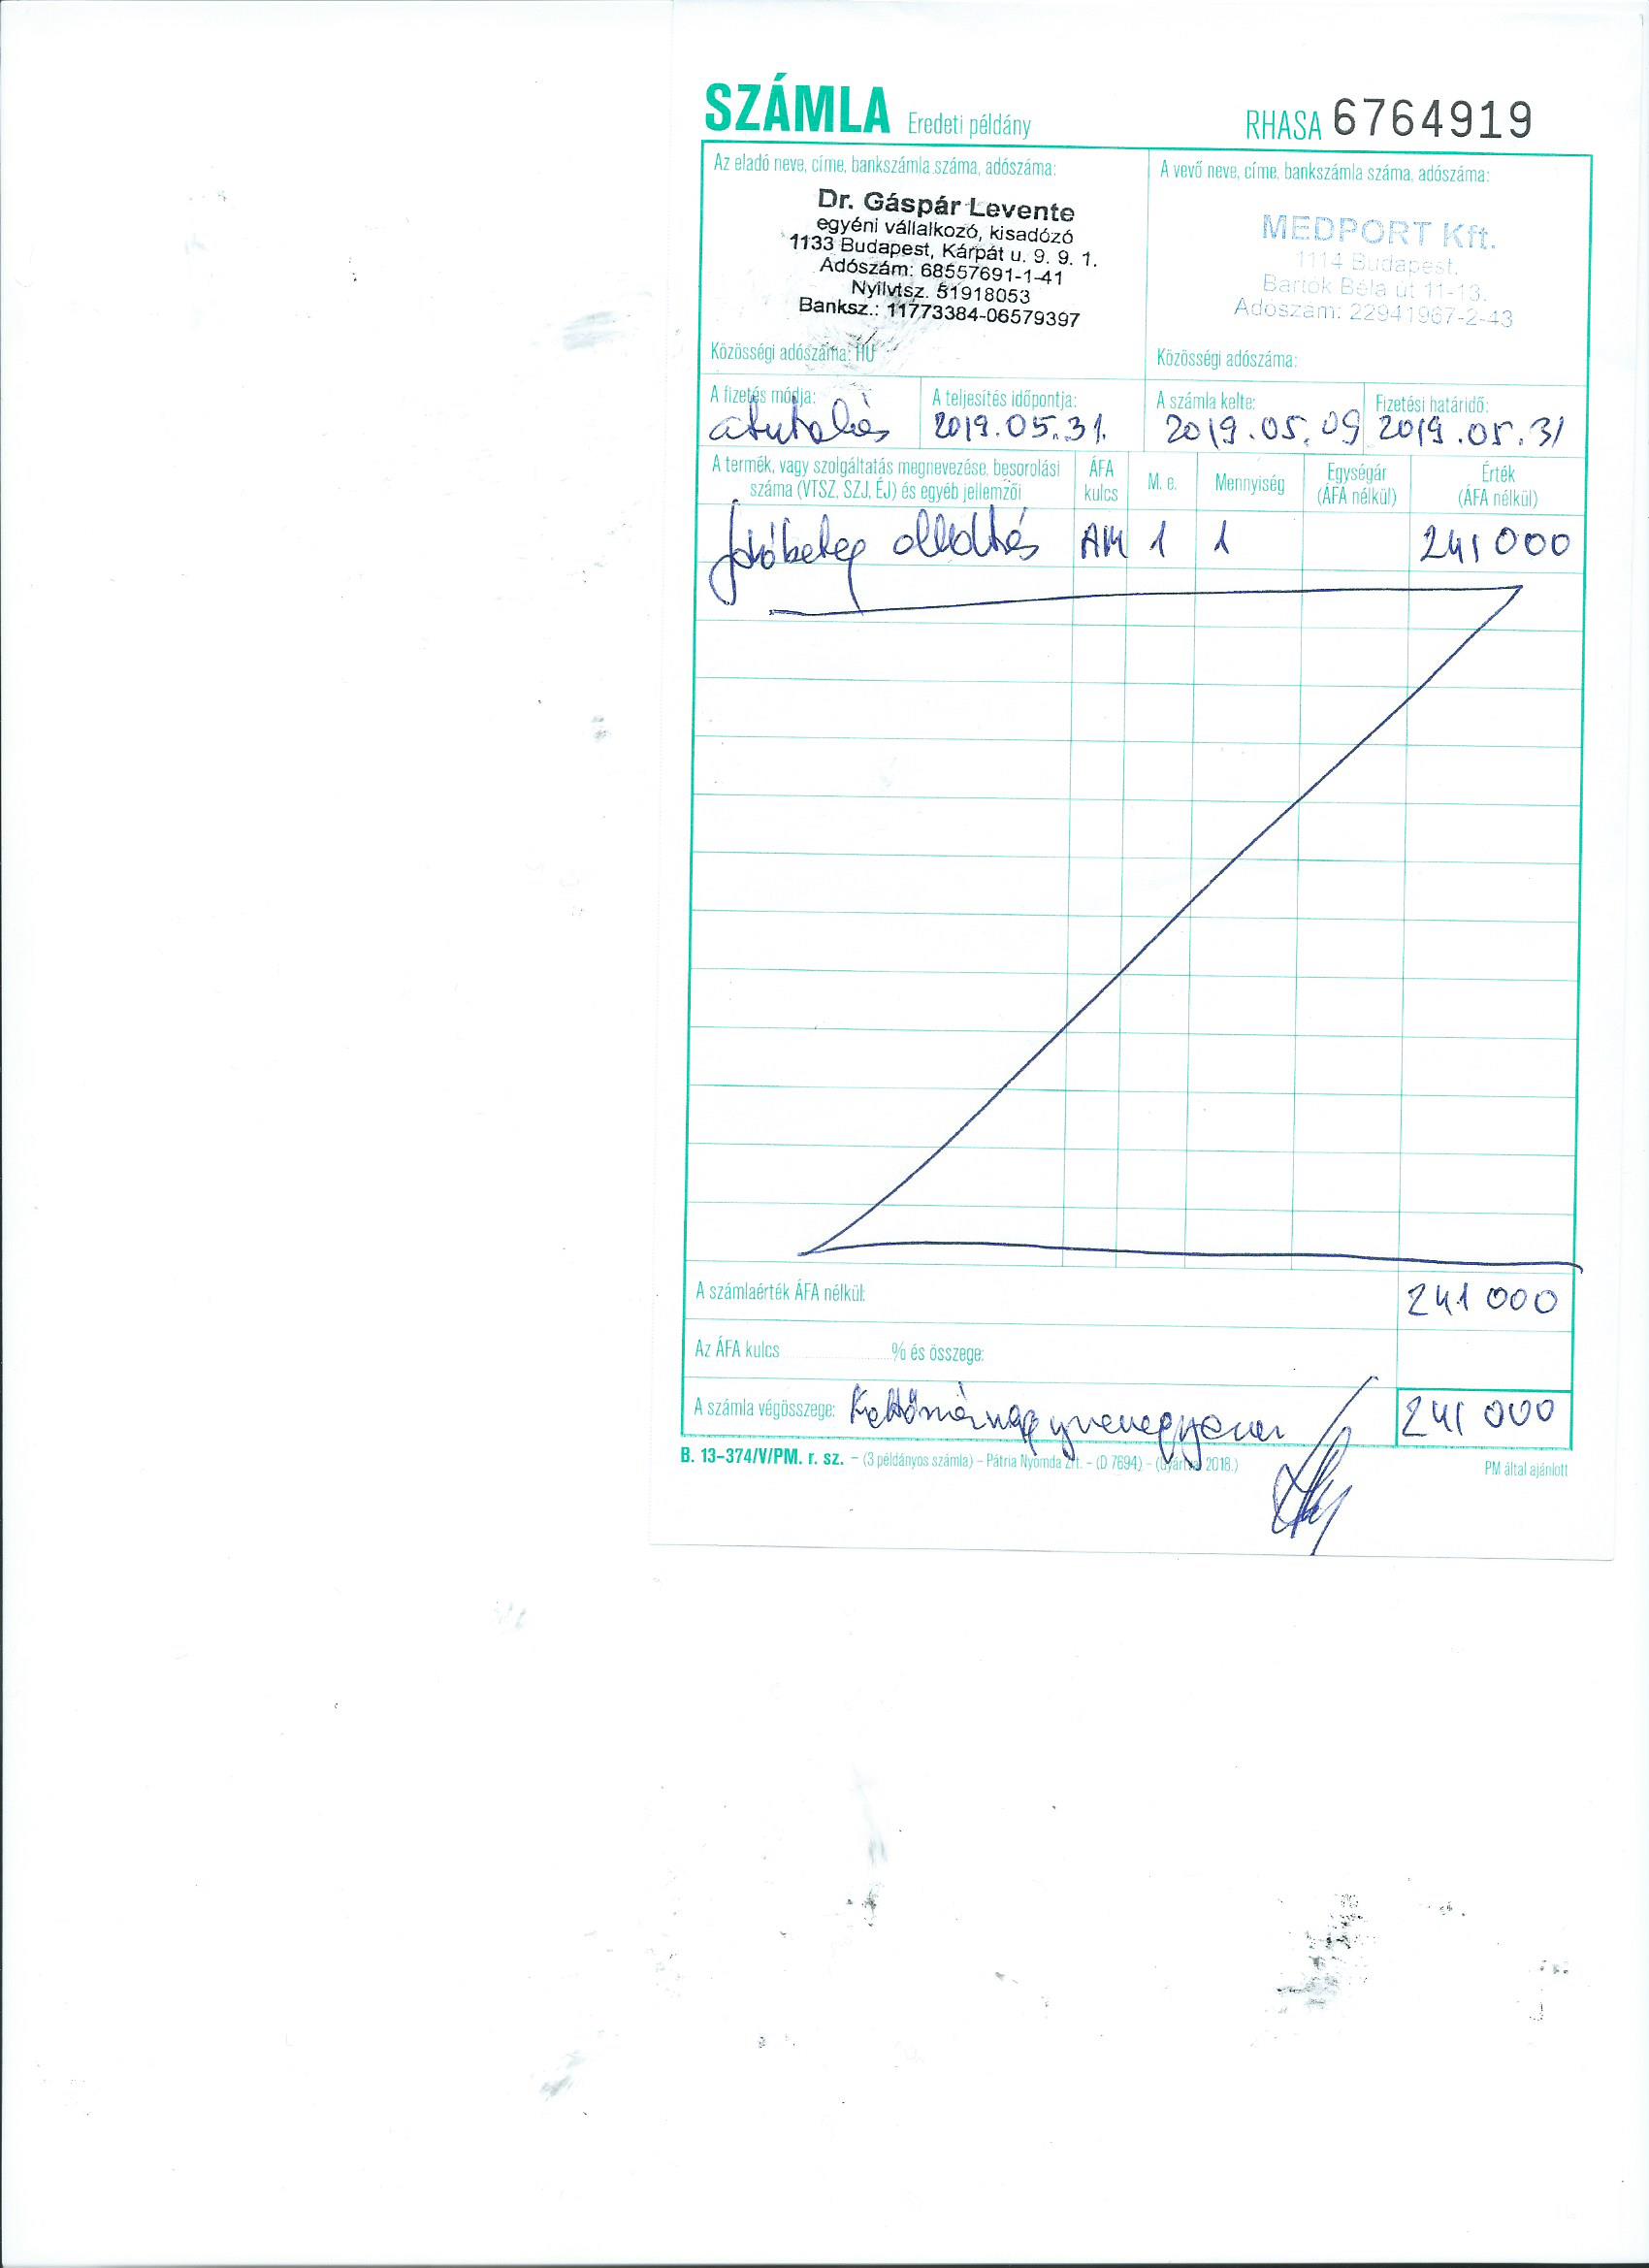 SZÁMLA Eredeti példány RHASA 6764919
Az eladó neve, címe, bankszámla száma, adószáma:
Dr. Gáspár Levente
egyéni vállalkozó, kisadózó
1133 Budapest, Kárpát u. 9. 9. 1.
Adószám: 68557691-1-41
Nyilvtsz. 51918053
Banksz.: 11773384-06579397
Közösségi adószáma: HU
A vevő neve, címe, bankszámla száma, adószáma:
MEDPORT Kft.
1114 Budapest,
Bartók Béla út 11-13.
Adószám: 22941967-2-43
Közösségi adószáma:
A fizetés módja: A teljesítés időpontja: A számla kelte: Fizetési határidő:
átutalás 2019.05.31. 2019.05.09 2019.05.31
A termék, vagy szolgáltatás megnevezése, besorolási száma (VTSZ, SZJ, ÉJ) és egyéb jellemzői ÁFA kulcs M. e. Mennyiség Egységár (ÁFA nélkül) Érték (ÁFA nélkül)
járóbeteg ellátás AM 1 1 241 000
A számlaérték ÁFA nélkül: 241 000
Az ÁFA kulcs % és összege:
A számla végösszege: Kettőszáznegyvenegyezer 241 000
B. 13-374/V/PM. r. sz. – (3 példányos számla) – Pátria Nyomda Zrt. – (D 7694) – (Gyártva: 2018.) PM által ajánlott